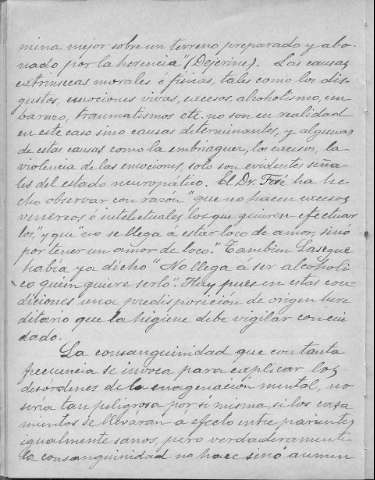 mina mejor sobre un terreno preparado y abo-
nado por la herencia (Dejerine). Las causas
extrinsecas morales ó fisicas, tales como los dis-
gustos, emociones vivas, excesos, alcoholismo, em-
barazo, traumatismos etc. no son en realidad
en este caso sino causas determinantes, y algunas
de estas causas como la embriaguez, los excesos, la
violencia de las emociones, solo son evidente seña-
les del estado neuropático. El Dr. Feré ha he-
cho observar con razon "que no hacen excesos
venereos ó intelectuales los que quieren efectuar
los", y que "no se llega á estar loco de amor, sinó
por tener un amor de loco." Tambien Lasegue
habia ya dicho "No llega á ser alcoholi-
co quien quiere serlo". Hay pues en estas con-
diciones una predisposición de origen here
ditario que la higiene debe vigilar con cui
dado.
La consanguinidad que con tanta
frecuencia se invoca para explicar los
desordenes de la enagenación mental, no
seria tan peligrosa por si misma, si los casa
mientos se llevaran a efecto entre parientes
igualmente sanos, pero verdaderamente
la consanguinidad no hace sinó aumen